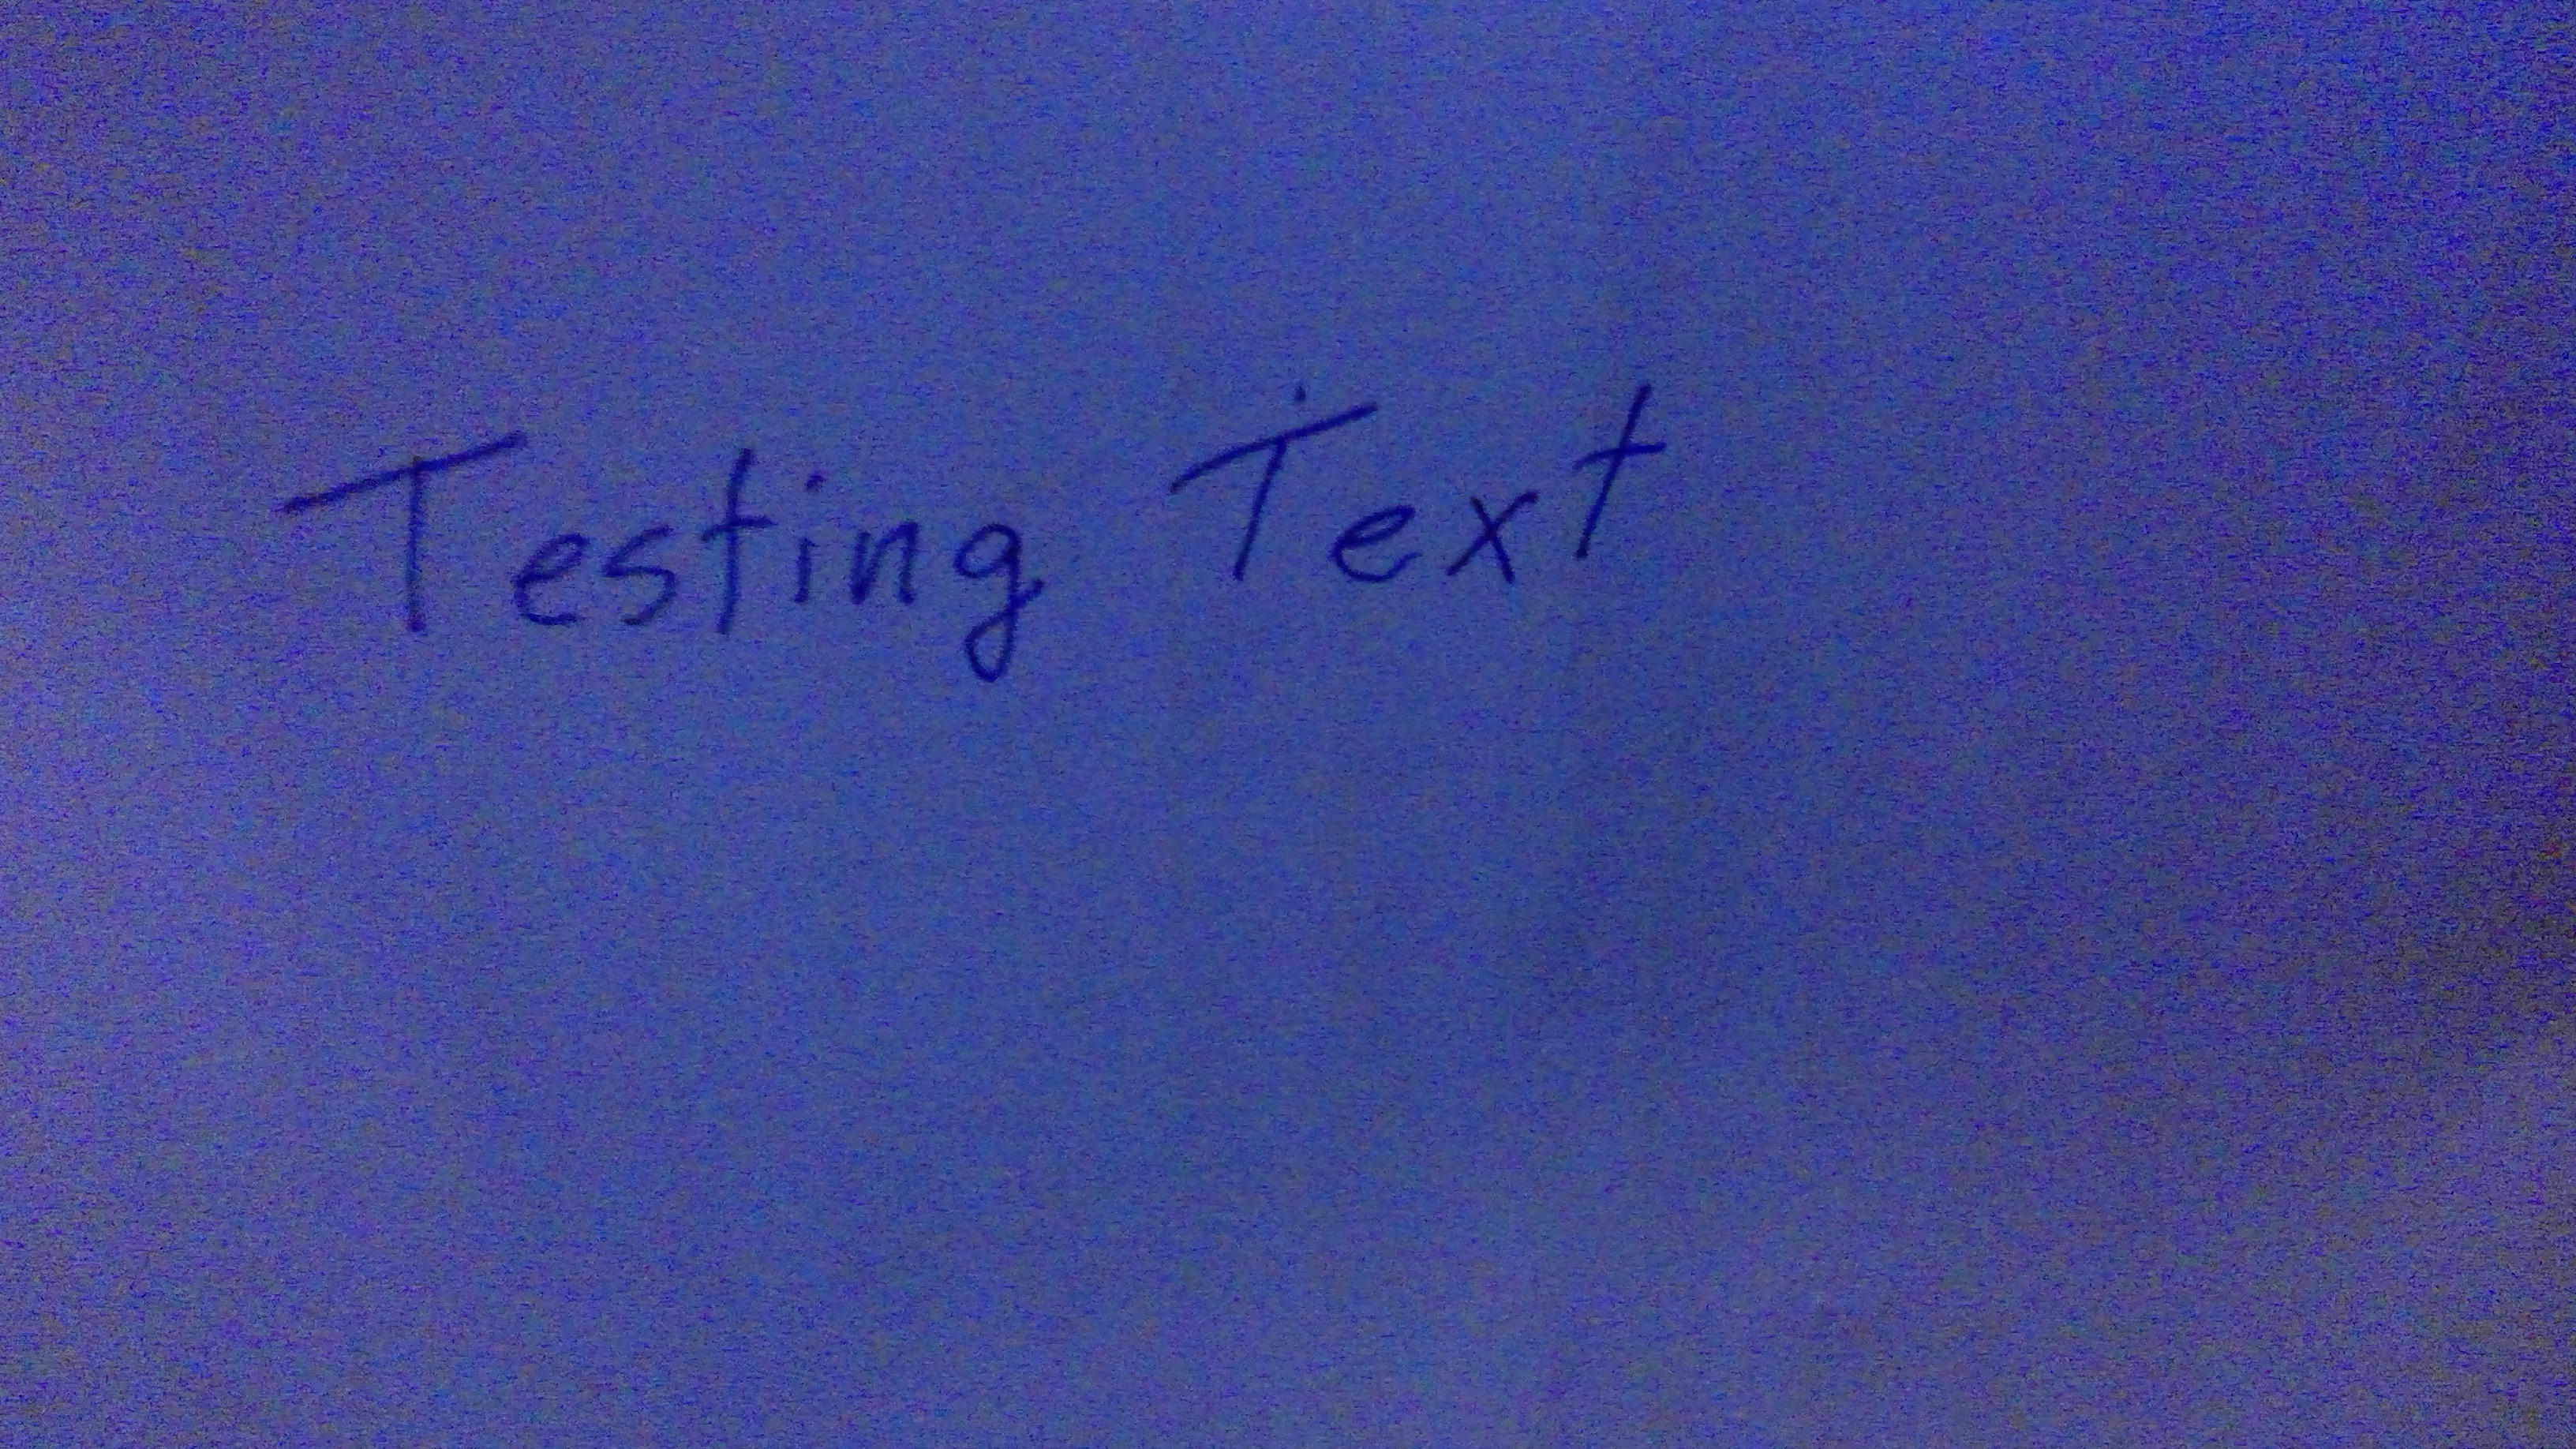 Testing Text